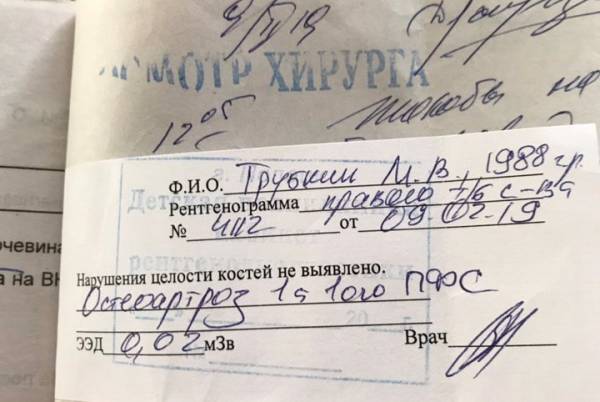 9/II 19
ОСМОТР ХИРУРГА
12 05
Жалобы на
Ф.И.О. Трубкин М.В., 1988 гр.
Рентгенограмма правого г/с с-ва
№ 402 от 09.02-19
Детская
рентген
Нарушения целости костей не выявлено.
Остеоартроз 1ст 1ого ПФС
20 г.
ЭЭД 0,02 мЗв Врач
чевина
а на ВИ